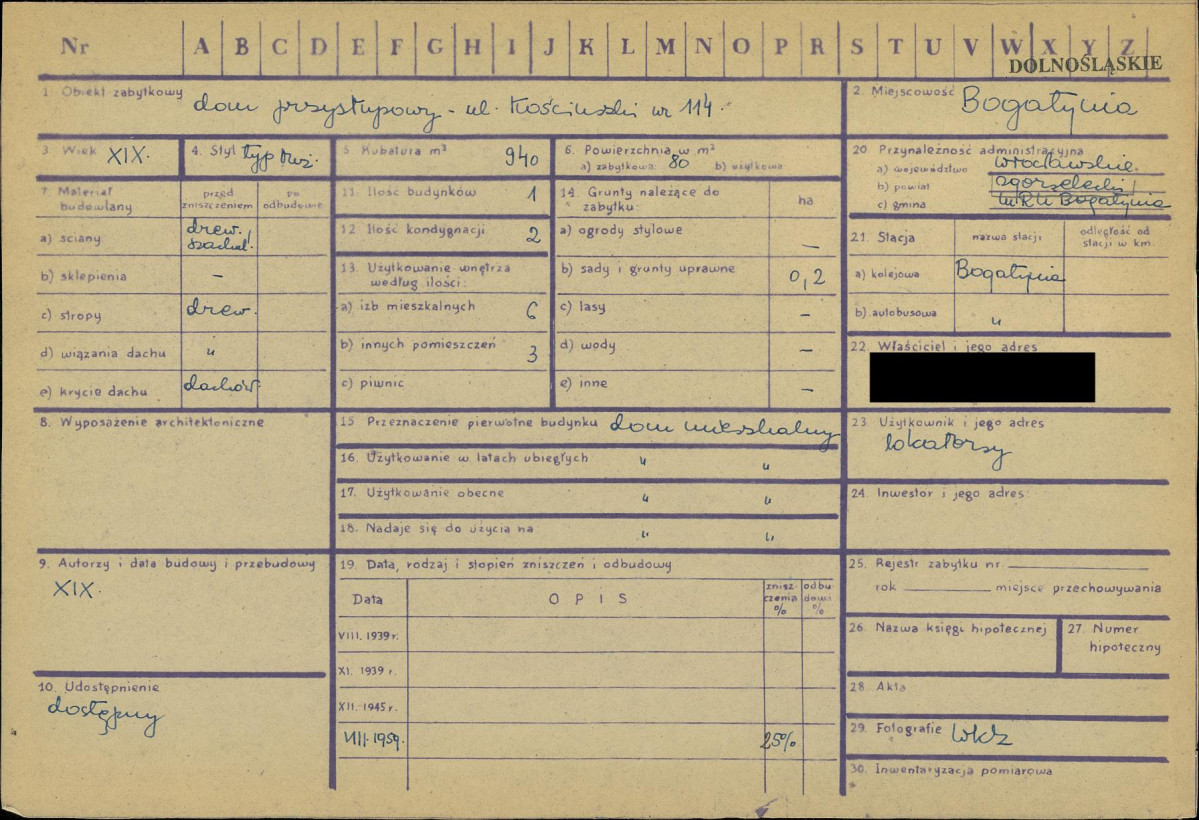 Nr A B C D E F G H I J K L M N O P R S T U V W X Y Z
DOLNOŚLĄSKIE
1. Obiekt zabytkowy dom przysłupowy - ul. Kościuszki nr 114.
2. Miejscowość Bogatynia
3. Wiek XIX.
4. Styl typ łuż.
5. Kubatura m³ 940
6. Powierzchnia w m²
a) zabytkowa: 80 b) użytkowa
7. Materiał budowlany
przed zniszczeniem
po odbudowie
a) ściany drew. szachul.
b) sklepienia –
c) stropy drew.
d) wiązania dachu "
e) krycie dachu dachów.
8. Wyposażenie architektoniczne
9. Autorzy i data budowy i przebudowy
XIX.
10. Udostępnienie
dostępny
11. Ilość budynków 1
12. Ilość kondygnacji 2
13. Użytkowanie wnętrza
według ilości:
a) izb mieszkalnych 6
b) innych pomieszczeń 3
c) piwnic
14. Grunty należące do
zabytku: ha
a) ogrody stylowe –
b) sady i grunty uprawne 0,2
c) lasy –
d) wody –
e) inne –
15. Przeznaczenie pierwotne budynku dom mieszkalny
16. Użytkowanie w latach ubiegłych " "
17. Użytkowanie obecne " "
18. Nadaje się do użycia na: " "
19. Data, rodzaj i stopień zniszczeń i odbudowy
Data OPIS zniszczenia % odbudowa %
VIII. 1939 r.
XI. 1939 r.
XII. 1945 r.
VIII. 1959. 25%
20. Przynależność administracyjna
a) województwo wrocławskie
b) powiat zgorzelecki
c) gmina Bogatynia
21. Stacja nazwa stacji odległość od
stacji w km.
a) kolejowa Bogatynia
b) autobusowa "
22. Właściciel i jego adres
23. Użytkownik i jego adres
lokatorzy
24. Inwestor i jego adres:
25. Rejestr zabytku nr.
rok miejsce przechowywania
26. Nazwa księgi hipotecznej
27. Numer
hipoteczny
28. Akta
29. Fotografie WKZ
30. Inwentaryzacja pomiarowa